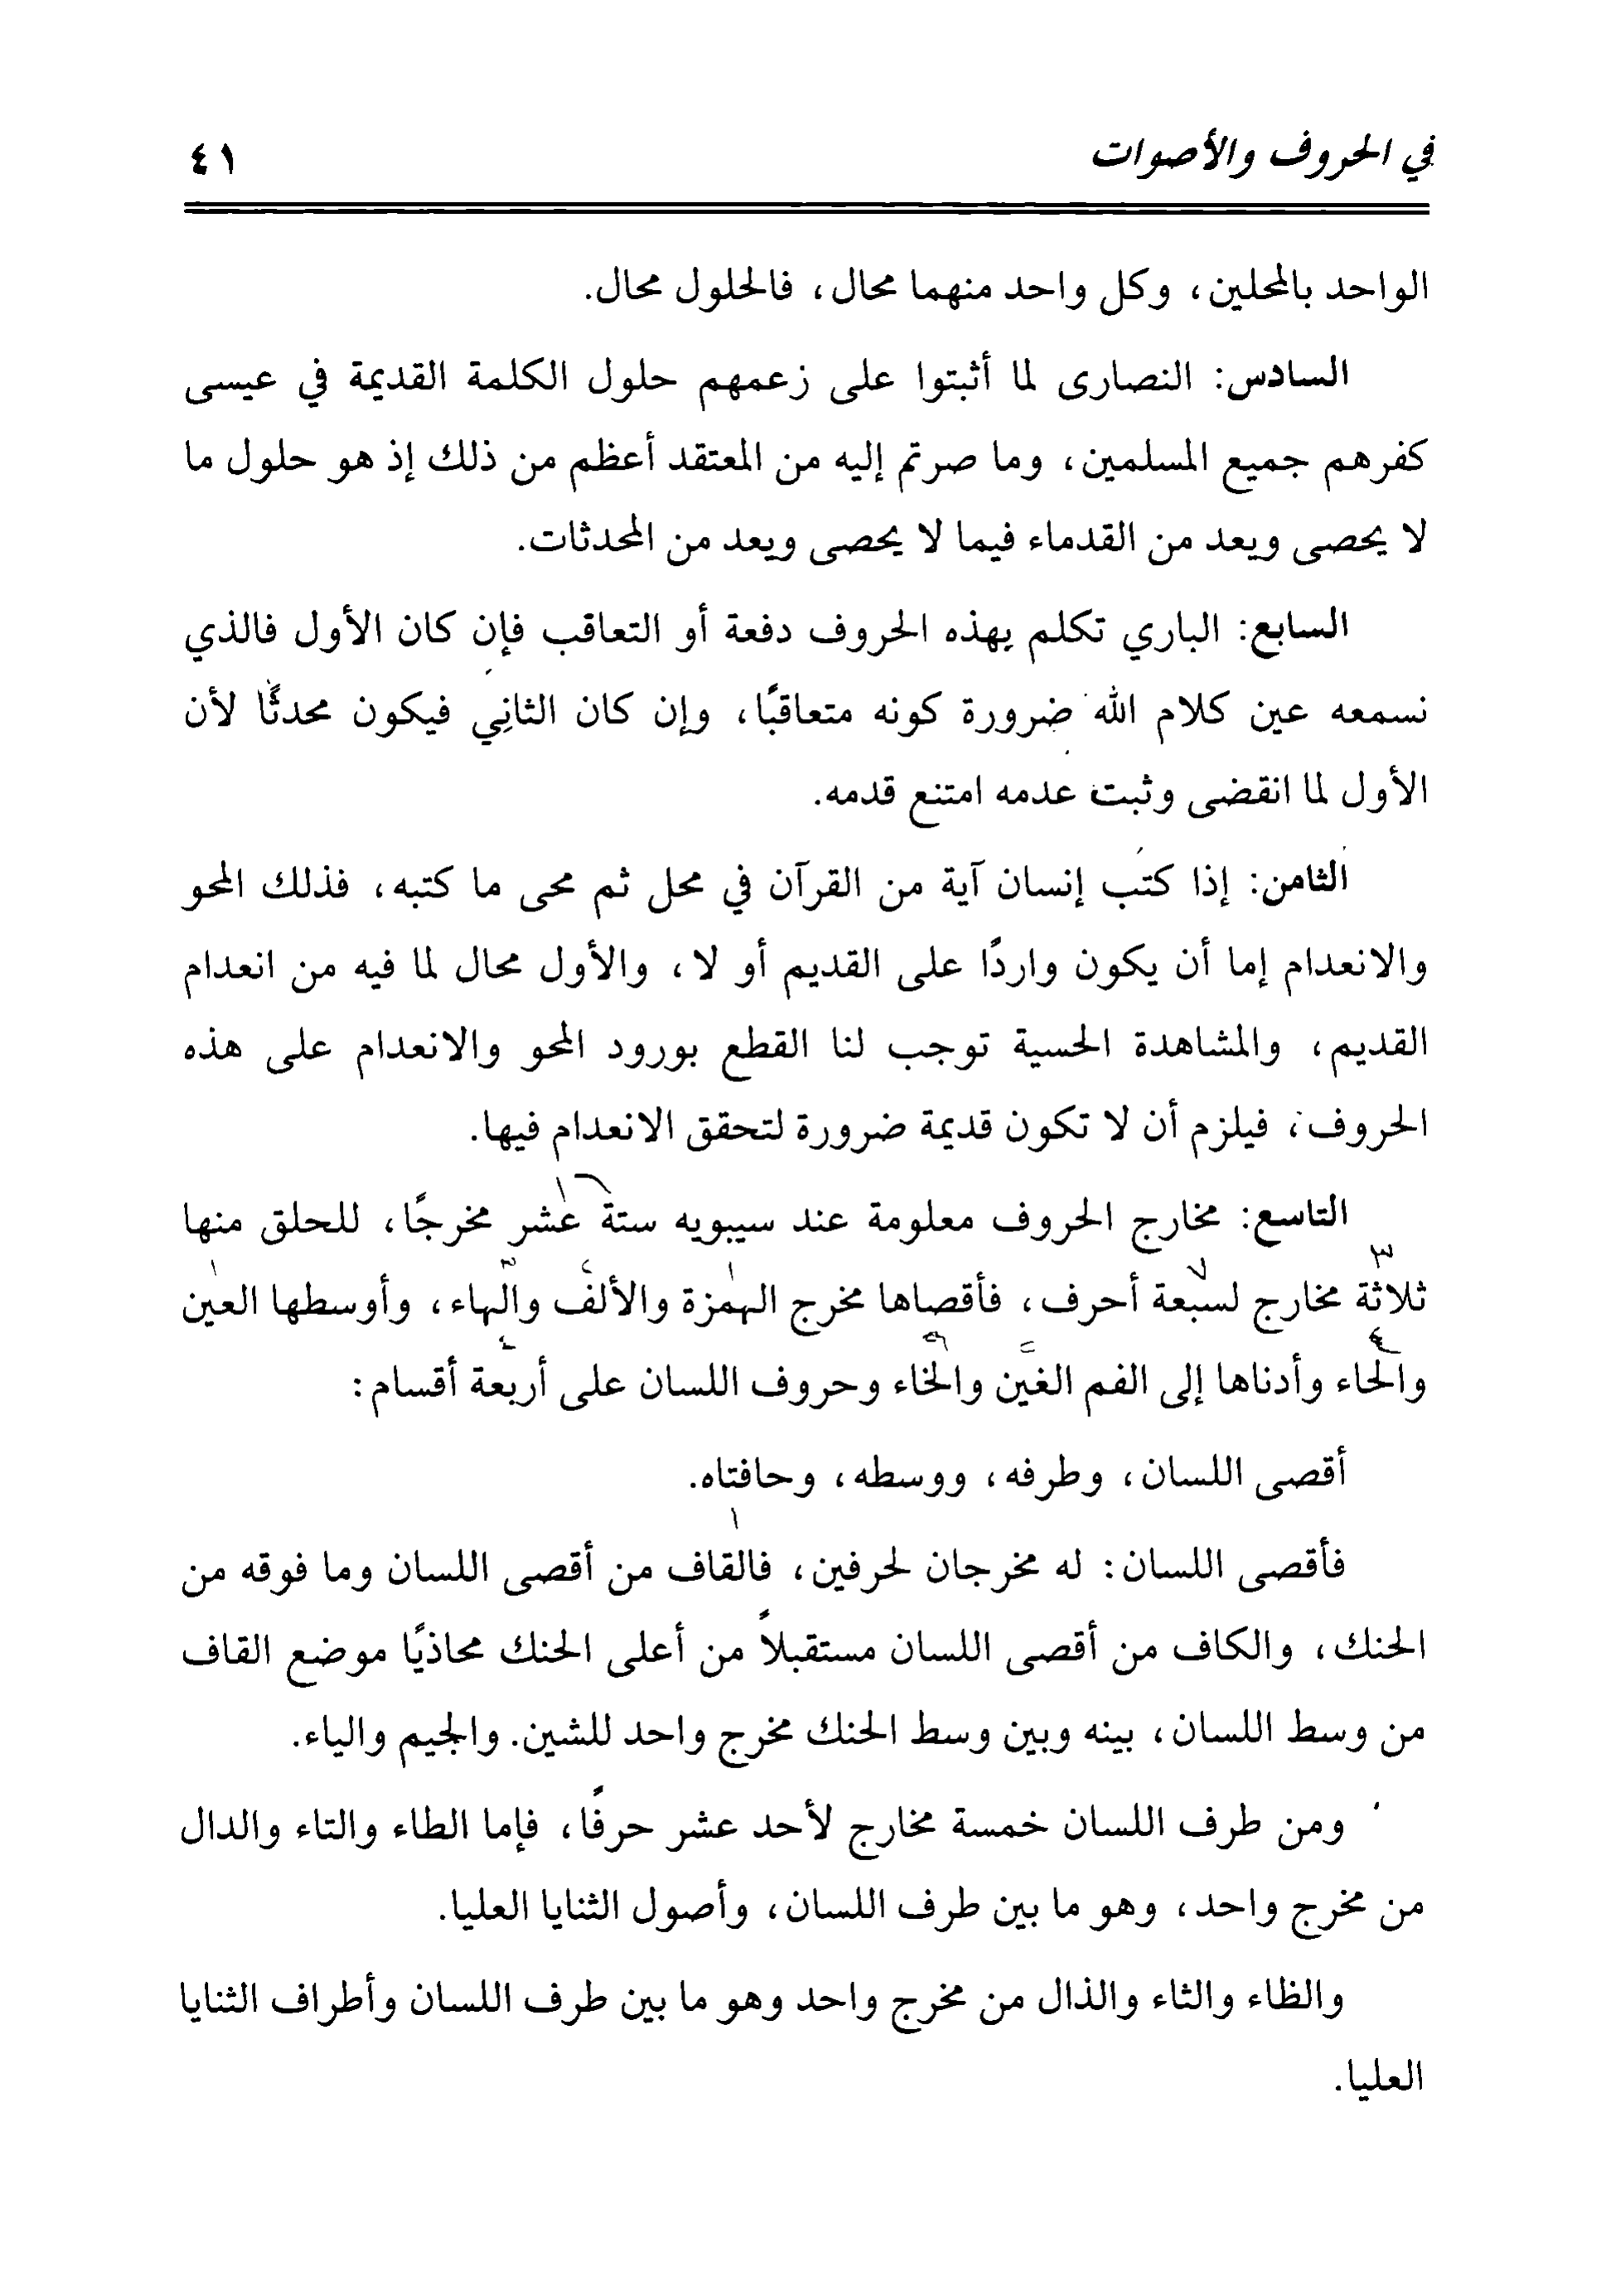 في الحروف والأصوات ٤١
الواحد بالمحلين، وكل واحد منهما محال، فالحلول محال.
السادس: النصارى لما أثبتوا على زعمهم حلول الكلمة القديمة في عيسى
كفرهم جميع المسلمين، وما صرتم إليه من المعتقد أعظم من ذلك إذ هو حلول ما
لا يحصى ويعد من القدماء فيما لا يحصى ويعد من المحدثات.
السابع: الباري تكلم بهذه الحروف دفعة أو التعاقب فإن كان الأول فالذي
نسمعه عين كلام الله ضرورة كونه متعاقبًا، وإن كان الثانِي فيكون محدثًا لأن
الأول لما انقضى وثبت عدمه امتنع قدمه.
الثامن: إذا كتب إنسان آية من القرآن في محل ثم محى ما كتبه، فذلك المحو
والانعدام إما أن يكون واردًا على القديم أو لا، والأول محال لما فيه من انعدام
القديم، والمشاهدة الحسية توجب لنا القطع بورود المحو والانعدام على هذه
الحروف، فيلزم أن لا تكون قديمة ضرورة لتحقق الانعدام فيها.
التاسع: مخارج الحروف معلومة عند سيبويه ستة عشر مخرجًا، للحلق منها
ثلاثة مخارج لسبعة أحرف، فأقصاها مخرج الهمزة والألف والهاء، وأوسطها العين
والحاء وأدناها إلى الفم الغين والخاء وحروف اللسان على أربعة أقسام:
أقصى اللسان، وطرفه، ووسطه، وحافتاه.
فأقصى اللسان: له مخرجان لحرفين، فالقاف من أقصى اللسان وما فوقه من
الحنك، والكاف من أقصى اللسان مستقبلاً من أعلى الحنك محاذيًا موضع القاف
من وسط اللسان، بينه وبين وسط الحنك مخرج واحد للشين. والجيم والياء.
ومن طرف اللسان خمسة مخارج لأحد عشر حرفًا، فإما الطاء والتاء والدال
من مخرج واحد، وهو ما بين طرف اللسان، وأصول الثنايا العليا.
والظاء والثاء والذال من مخرج واحد وهو ما بين طرف اللسان وأطراف الثنايا
العليا.